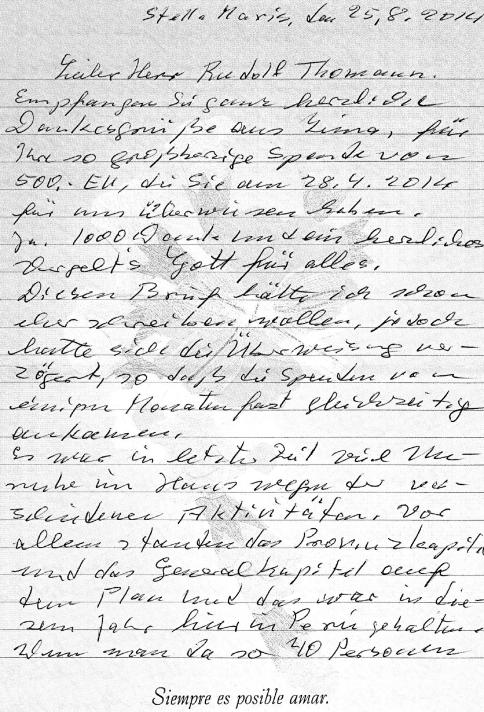 Stella Maris, den 25.8.2014
Lieber Herr Rudolf Thomann.
Empfangen Sie ganz herzliche
Dankesgrüße aus Lima, für
Ihre so großherzige Spende von
500,- EU, die Sie am 28.4.2014
für uns überwiesen haben.
Ja. 1000 Dank und ein herzliches
Vergelt's Gott für alles.
Diesen Brief hätte ich schon
eher schreiben wollen, jedoch
hatte sich die Überweisung ver-
zögert, so daß die Spenden von
einigen Monaten fast gleichzeitig
ankamen.
Es war in letzter Zeit viel Un-
ruhe im Haus wegen der ver-
schiedenen Aktivitäten. Vor
allem standen das Provinzkapitel
und das Generalkapitel auf
dem Plan und das war in die-
sem Jahr hier in Perú gehalten.
Wenn man da so 40 Personen
Siempre es posible amar.